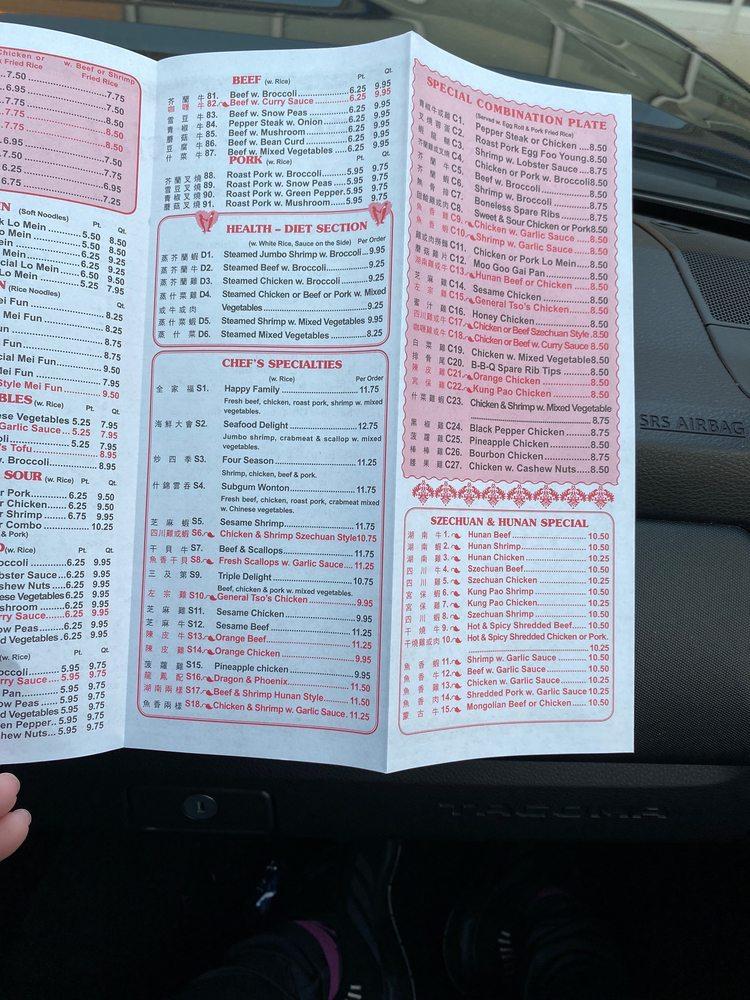 Chicken or w. Beef or Shrimp
Fried Rice Fried Rice
7.50 7.75
6.95 7.75
7.75 8.50
7.75 8.50
7.75 8.50
6.50 7.50
6.75 7.75
6.25 6.95
6.75 7.25
(Soft Noodles)
Pt. Qt.
Lo Mein 5.50 8.50
(Rice Noodles)
Qt.
Mei Fun 8.25
Style Mei Fun 9.50
BLES (w. Rice)
Pt. Qt.
ese Vegetables 5.25 7.95
Garlic Sauce 5.25 7.95
's Tofu 8.95
w. Broccoli 8.95
SOUR (w. Rice) Pt. Qt.
r Pork 6.25 9.50
r Chicken 6.25 9.50
r Shrimp 6.75 9.95
r Combo 10.25
& Pork)
(w. Rice) Pt. Qt.
occoli 6.25 9.95
obster Sauce 6.25 9.95
shew Nuts 6.25 9.95
nese Vegetables 6.25 9.95
shroom 6.25 9.95
rry Sauce 6.25 9.95
ow Peas 6.25 9.95
ed Vegetables 6.25 9.95
(w. Rice) Pt. Qt.
occoli 5.95 9.75
rry Sauce 5.95 9.75
Pan 5.95 9.75
ow Peas 5.95 9.75
ed Vegetables 5.95 9.75
en Pepper 5.95 9.75
hew Nuts 5.95 9.75
BEEF (w. Rice)
Pt. Qt.
芥蘭牛 81. Beef w. Broccoli 6.25 9.95
咖喱牛 82. Beef w. Curry Sauce 6.25 9.95
雪豆牛 83. Beef w. Snow Peas 6.25 9.95
青椒牛 84. Pepper Steak w. Onion 6.25 9.95
蘑菇牛 85. Beef w. Mushroom 6.25 9.95
豆腐牛 86. Beef w. Bean Curd 6.25 9.95
什菜牛 87. Beef w. Mixed Vegetables 6.25 9.95
PORK (w. Rice)
Pt. Qt.
芥蘭叉燒 88. Roast Pork w. Broccoli 5.95 9.75
雪豆叉燒 89. Roast Pork w. Snow Peas 5.95 9.75
青椒叉燒 90. Roast Pork w. Green Pepper 5.95 9.75
蘑菇叉燒 91. Roast Pork w. Mushroom 5.95 9.75
HEALTH – DIET SECTION
(w. White Rice, Sauce on the Side) Per Order
蒸芥蘭蝦 D1. Steamed Jumbo Shrimp w. Broccoli 9.95
蒸芥蘭牛 D2. Steamed Beef w. Broccoli 9.25
蒸芥蘭雞 D3. Steamed Chicken w. Broccoli 9.25
蒸什菜雞 D4. Steamed Chicken or Beef or Pork w. Mixed
或牛或肉 Vegetables 9.25
蒸什菜蝦 D5. Steamed Shrimp w. Mixed Vegetables 9.95
蒸什菜 D6. Steamed Mixed Vegetables 8.25
CHEF'S SPECIALTIES
(w. Rice) Per Order
全家福 S1. Happy Family 11.75
Fresh beef, chicken, roast pork, shrimp w. mixed
vegetables.
海鮮大會 S2. Seafood Delight 12.75
Jumbo shrimp, crabmeat & scallop w. mixed
vegetables.
炒四季 S3. Four Season 11.25
Shrimp, chicken, beef & pork.
什錦雲吞 S4. Subgum Wonton 11.75
Fresh beef, chicken, roast pork, crabmeat mixed
w. Chinese vegetables.
芝麻蝦 S5. Sesame Shrimp 11.75
四川雞或蝦 S6. Chicken & Shrimp Szechuan Style 10.75
干貝牛 S7. Beef & Scallops 11.75
魚香干貝 S8. Fresh Scallops w. Garlic Sauce 11.25
三及第 S9. Triple Delight 10.75
Beef, chicken & pork w. mixed vegetables.
左宗雞 S10. General Tso's Chicken 9.95
芝麻雞 S11. Sesame Chicken 9.95
芝麻牛 S12. Sesame Beef 11.25
陳皮牛 S13. Orange Beef 11.25
陳皮雞 S14. Orange Chicken 9.95
菠蘿雞 S15. Pineapple chicken 9.95
龍鳳配 S16. Dragon & Phoenix 11.50
湖南兩樣 S17. Beef & Shrimp Hunan Style 11.50
魚香兩樣 S18. Chicken & Shrimp w. Garlic Sauce 11.25
SPECIAL COMBINATION PLATE
(Served w. Egg Roll & Pork Fried Rice)
青椒牛或雞 C1. Pepper Steak or Chicken 8.50
叉燒蓉蛋 C2. Roast Pork Egg Foo Young 8.50
蝦龍糊 C3. Shrimp w. Lobster Sauce 8.75
芥蘭雞或叉燒 C4. Chicken or Pork w. Broccoli 8.50
芥蘭牛 C5. Beef w. Broccoli 8.50
芥蘭蝦 C6. Shrimp w. Broccoli 8.50
無骨排 C7. Boneless Spare Ribs 8.75
甜酸雞或肉 C8. Sweet & Sour Chicken or Pork 8.50
魚香雞 C9. Chicken w. Garlic Sauce 8.50
魚香蝦 C10. Shrimp w. Garlic Sauce 8.50
雞或肉撈麵 C11. Chicken or Pork Lo Mein 8.50
蘑菇雞片 C12. Moo Goo Gai Pan 8.50
湖南雞或牛 C13. Hunan Beef or Chicken 8.50
芝麻雞 C14. Sesame Chicken 8.50
左宗雞 C15. General Tso's Chicken 8.50
蜜汁雞 C16. Honey Chicken 8.50
四川雞或牛 C17. Chicken or Beef Szechuan Style 8.50
咖喱雞或牛 C18. Chicken or Beef w. Curry Sauce 8.50
白菜雞 C19. Chicken w. Mixed Vegetable 8.50
排骨尾 C20. B-B-Q Spare Rib Tips 8.50
陳皮雞 C21. Orange Chicken 8.50
宮保雞 C22. Kung Pao Chicken 8.50
什菜雞蝦 C23. Chicken & Shrimp w. Mixed Vegetable
8.75
黑椒雞 C24. Black Pepper Chicken 8.75
菠蘿雞 C25. Pineapple Chicken 8.50
棒棒雞 C26. Bourbon Chicken 8.75
腰果雞 C27. Chicken w. Cashew Nuts 8.50
SZECHUAN & HUNAN SPECIAL
湖南牛 1. Hunan Beef 10.50
湖南蝦 2. Hunan Shrimp 10.50
湖南雞 3. Hunan Chicken 10.25
四川牛 4. Szechuan Beef 10.50
四川雞 5. Szechuan Chicken 10.25
宮保蝦 6. Kung Pao Shrimp 10.50
宮保雞 7. Kung Pao Chicken 10.25
四川蝦 8. Szechuan Shrimp 10.50
干燒牛 9. Hot & Spicy Shredded Beef 10.50
干燒雞或肉 10. Hot & Spicy Shredded Chicken or Pork.
10.25
魚香蝦 11. Shrimp w. Garlic Sauce 10.50
魚香牛 12. Beef w. Garlic Sauce 10.50
魚香雞 13. Chicken w. Garlic Sauce 10.25
魚香肉 14. Shredded Pork w. Garlic Sauce 10.25
蒙古牛 15. Mongolian Beef or Chicken 10.50
SRS AIRBAG
TACOMA